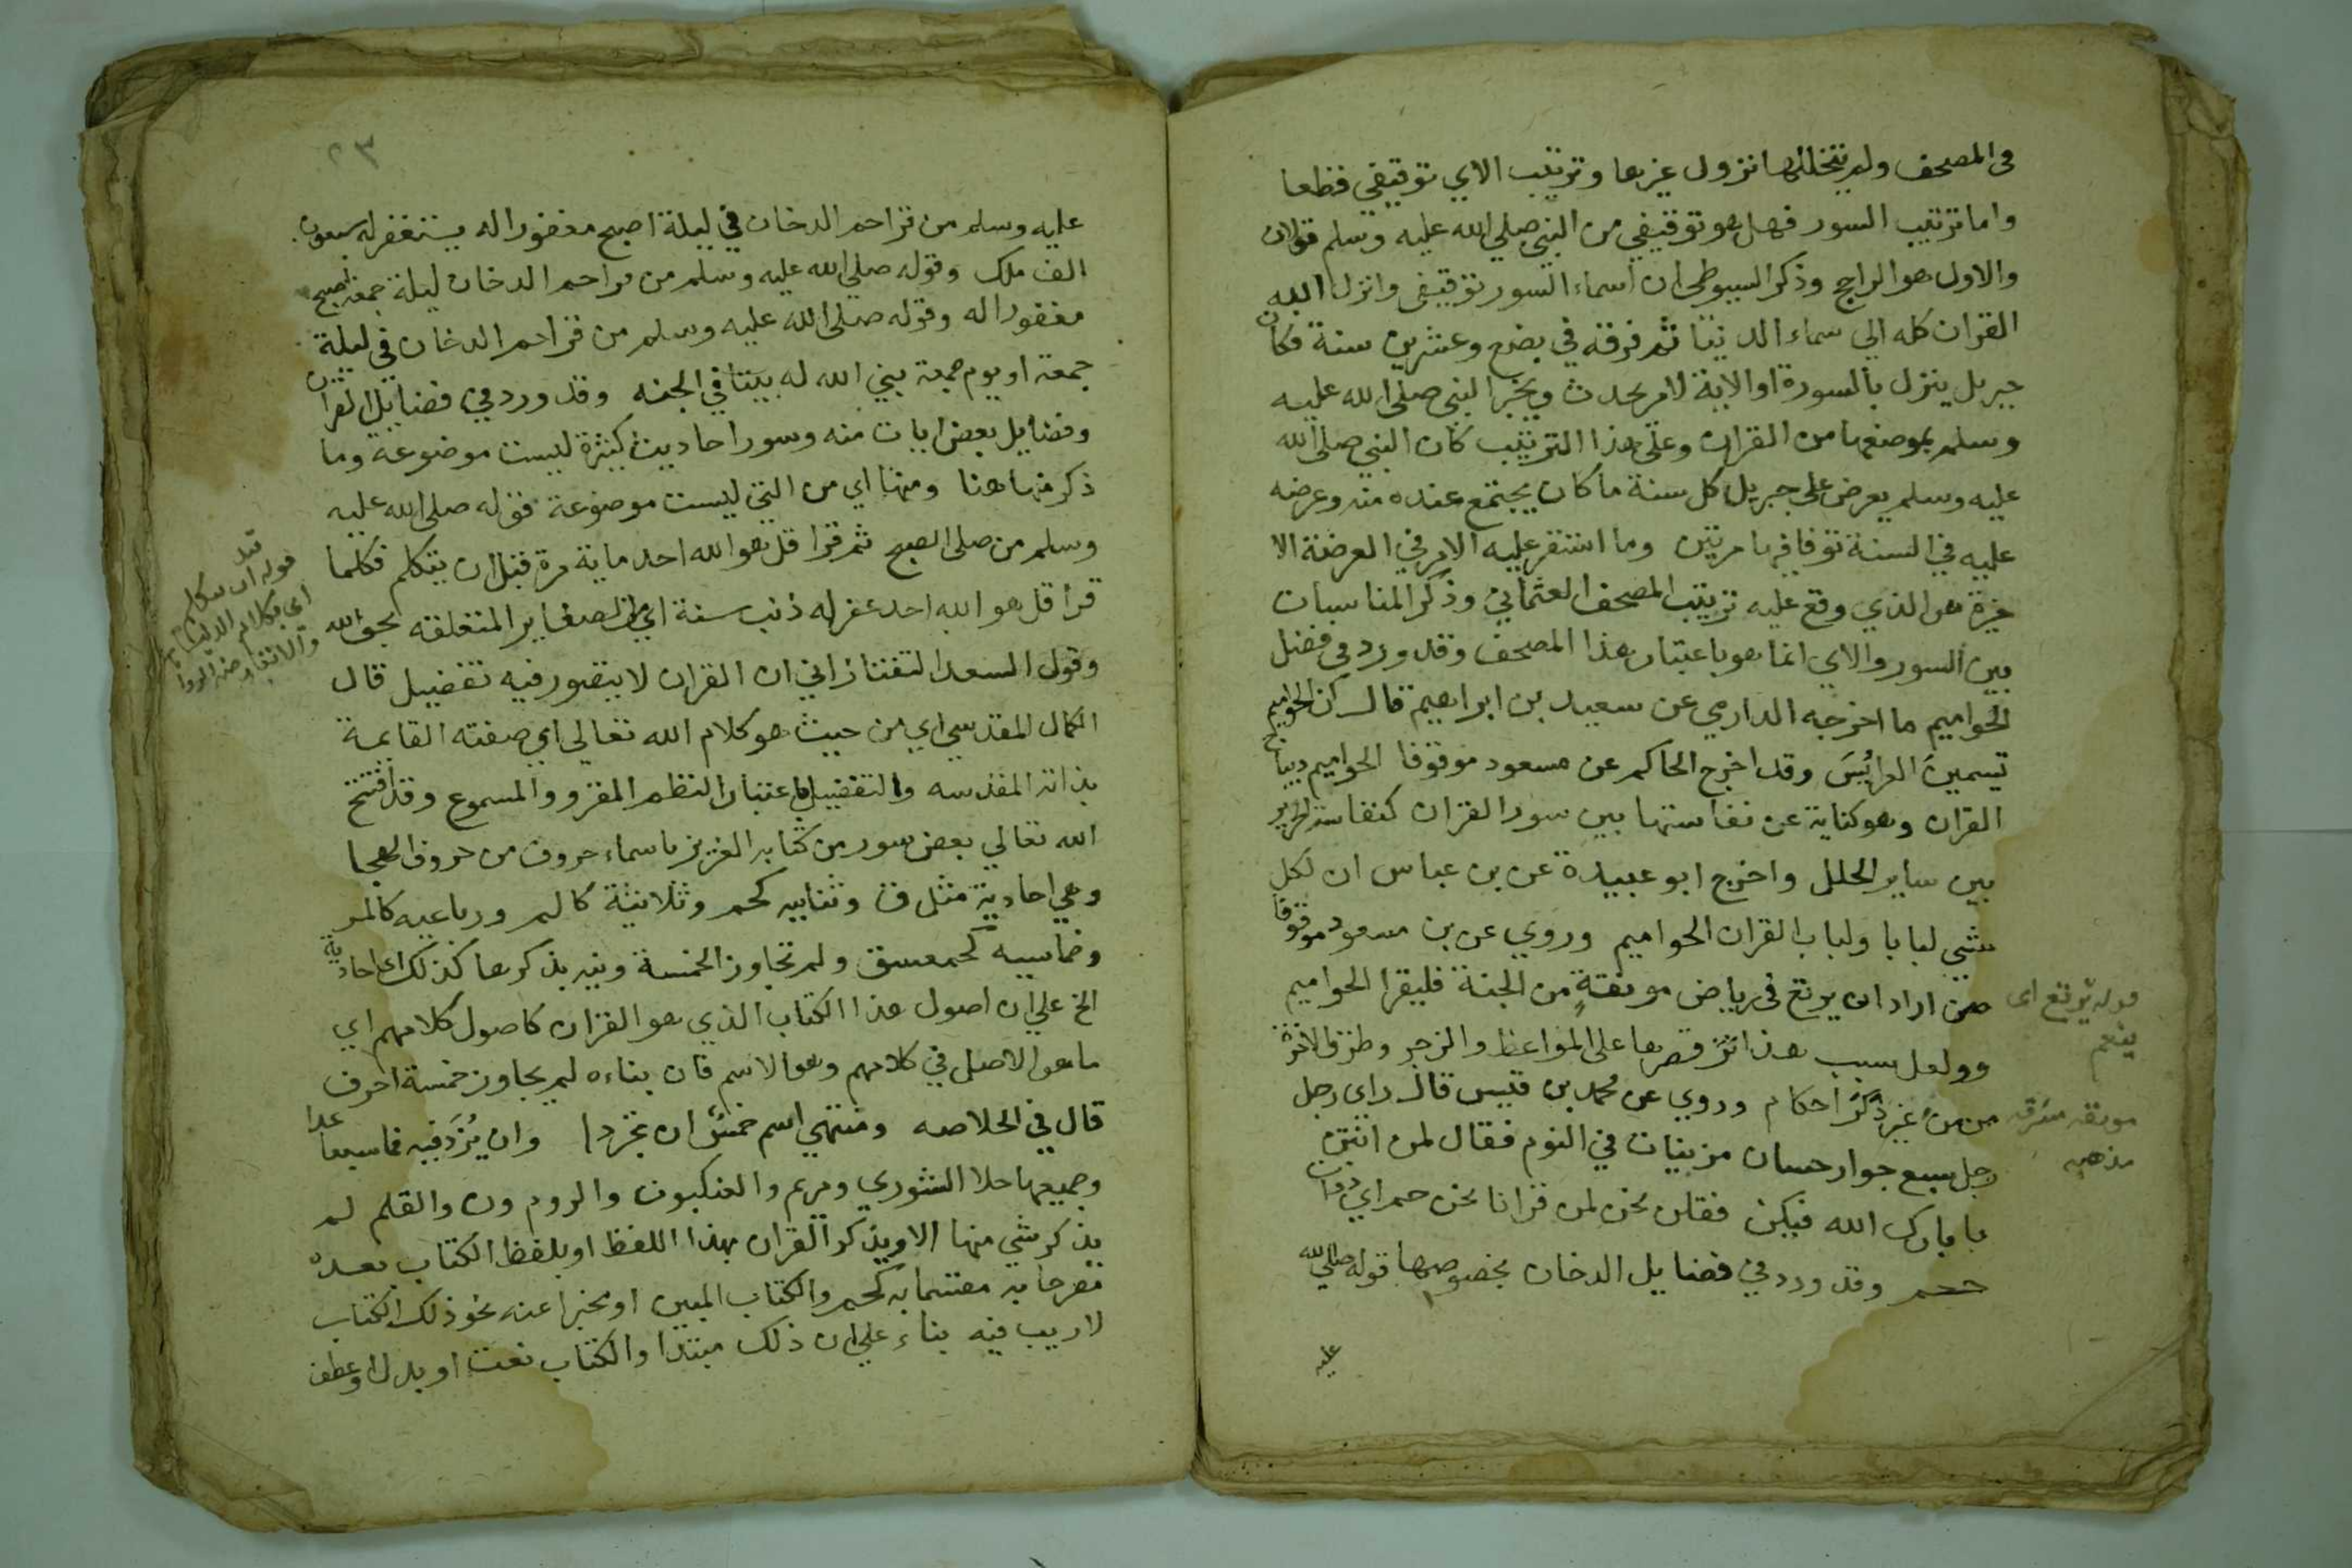 في المصحف ولم يتخللها نزول غيرها وترتيب الاي توقيفي قطعا
واما ترتيب السور فهل هو توقيفي من النبي صلي الله عليه وسلم قولان
والاول هو الراجح وذكر السيوطي ان اسماء السور توقيفي وانزل الله
القران كله الي سماء الدنيا ثم فرقه في بضع وعشرين سنة فكان
جبريل ينزل بالسورة او الاية لامر يحدث ويخبر النبي صلي الله عليه
وسلم بموضعها من القران وعلي هذا الترتيب كان النبي صلي الله
عليه وسلم يعرض علي جبريل كل سنة ما كان يجتمع عنده منه وعرضه
عليه في السنة توفا فيها مرتين وما استقر عليه الامر في العرضة الا
خيرة هو الذي وقع عليه ترتيب المصحف العثماني وذكر المناسبات
بين السور والاي انما هو باعتبار هذا المصحف وقد ورد في فضل
الحواميم ما اخرجه الدارمي عن سعيد بن ابراهيم قال كن الحواميم
تسمين العرائس وقد اخرج الحاكم عن مسعود موقوفا الحواميم ديباج
القران وهو كناية عن نفاستها بين سور القران كنفاسة الحرير
بين ساير الحلل واخرج ابو عبيدة عن بن عباس ان لكل
شي لبابا ولباب القران الحواميم وروي عن بن مسعود موقوفا
من اراد ان يرتع في رياض مونقة من الجنة فليقرا الحواميم
وولعل سبب هذا قصرها علي المواعظ والزجر وطرق الاخرة
من غير ذكر احكام وروي عن محمد بن قيس قال راي رجل
رجل سبع جوار حسان مزينات في النوم فقال لمن انتن
يا بارك الله فيكن فقلن نحن لمن قرانا نحن حم اي ذوات
حم وقد ورد في فضايل الدخان بخصوصها قوله صلي الله
عليه
قوله يرتع اي
ينعم
مونقه مشرقه
مذهبه
٢٣
عليه وسلم من قرا حم الدخان في ليلة اصبح مغفورا له يستغفر له سبعون
الف ملك وقوله صلي الله عليه وسلم من قرا حم الدخان ليلة جمعة اصبح
مغفورا له وقوله صلي الله عليه وسلم من قرا حم الدخان في ليلة
جمعة او يوم جمعة بني الله له بيتا في الجنه وقد ورد في فضايل القران
وفضايل بعض ايات منه وسور احاديث كثيرة ليست موضوعة وما
ذكر منها هنا ومنها اي من التي ليست موضوعة قوله صلي الله عليه
وسلم من صلى الصبح ثم قرا قل هو الله احد ماية مرة قبل ان يتكلم فكلما
قرا قل هو الله احد غفر له ذنب سنة اي من الصغاير المتعلقه بحق الله
وقول السعد التفتازاني ان القران لا يتصور فيه تفضيل قال
الكمال المقدسي اي من حيث هو كلام الله تعالي اي صفته القايمة
بذاته المقدسه والتفضيل باعتبار النظم المقرو والمسموع وقد افتتح
الله تعالي بعض سور من كتابه العزيز باسماء حروف من حروف الهجا
وهي احادية مثل ق وثنايية كحم وثلاثية كالم ورباعيه كالمر
وخماسيه كحمعسق ولم تجاوز الخمسة ونبه بذكرها كذلك اي احادية
الخ علي ان اصول هذا الكتاب الذي هو القران كاصول كلامهم اي
ما هو الاصل في كلامهم وهو الاسم فان بناءه لم يجاوز خمسة احرف
قال في الخلاصه ومنتهي اسم خمس ان تجردا وان يزد فيه فما سبعا عدا
وجميعها خلا الشوري ومريم والعنكبوت والروم ون والقلم لم
يذكر شي منها الا ويذكر القران بهذا اللفظ او بلفظ الكتاب بعده
مصرحا به مقسما به كحم والكتاب المبين او مخبرا عنه نحو ذلك الكتاب
لا ريب فيه بناء علي ان ذلك مبتدا والكتاب نعت او بدل او عطف
قوله قبل ان يتكلم
اي بكلام الدنيا